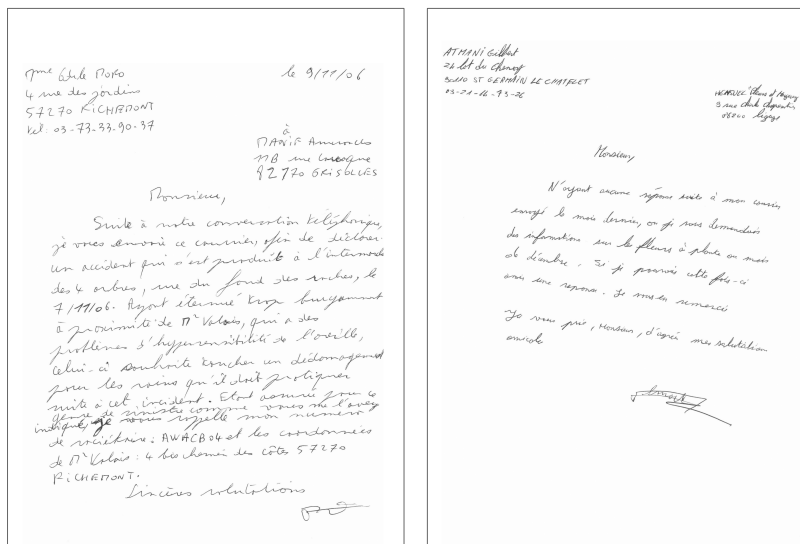 Mme Cécile MORO
4 rue des jardins
57270 RICHEMONT
tel. 03-73-33-90-37
le 9/11/06
à
MAAVIF Assurances
11B rue
82170 GRISOLLES
Monsieur,
Suite à notre conversation téléphonique,
je vous envoie ce courrier, afin de déclarer
un accident qui s'est produit à l'intermode
des 4 arbres, rue du fond des roches, le
7/11/06. Ayant éternué trop bruyamment
à proximité de Mr Valois, qui a des
problèmes d'hypersensibilité de l'oreille,
celui-ci souhaite toucher un dédomagement
pour les soins qu'il doit pratiquer
suite à cet incident. Etant assurée pour ce
genre de sinistre comme vous me l'avez
indiqué, je vous rappelle mon numero
de sociétaire : AWACB04 et les coordonnees
de Mr Valois : 4 bis chemin des côtes 57270
RICHEMONT.
Sincères salutations
ATMANI Gilbert
24 lot du Chenoy
ST GERMAIN LE CHATELET
03-21-16-93-26
fleurs et
3 rue
Monsieur,
N'ayant aucune réponse suite à mon courrier
envoyé le mois dernier, ou je vous demandais
des informations sur les fleurs à planter au mois
de décembre. Si je pouvais cette fois-ci
avoir une reponse. Je vous en remercie
Je vous prie, Monsieur, d'agréer mes salutation
amicale